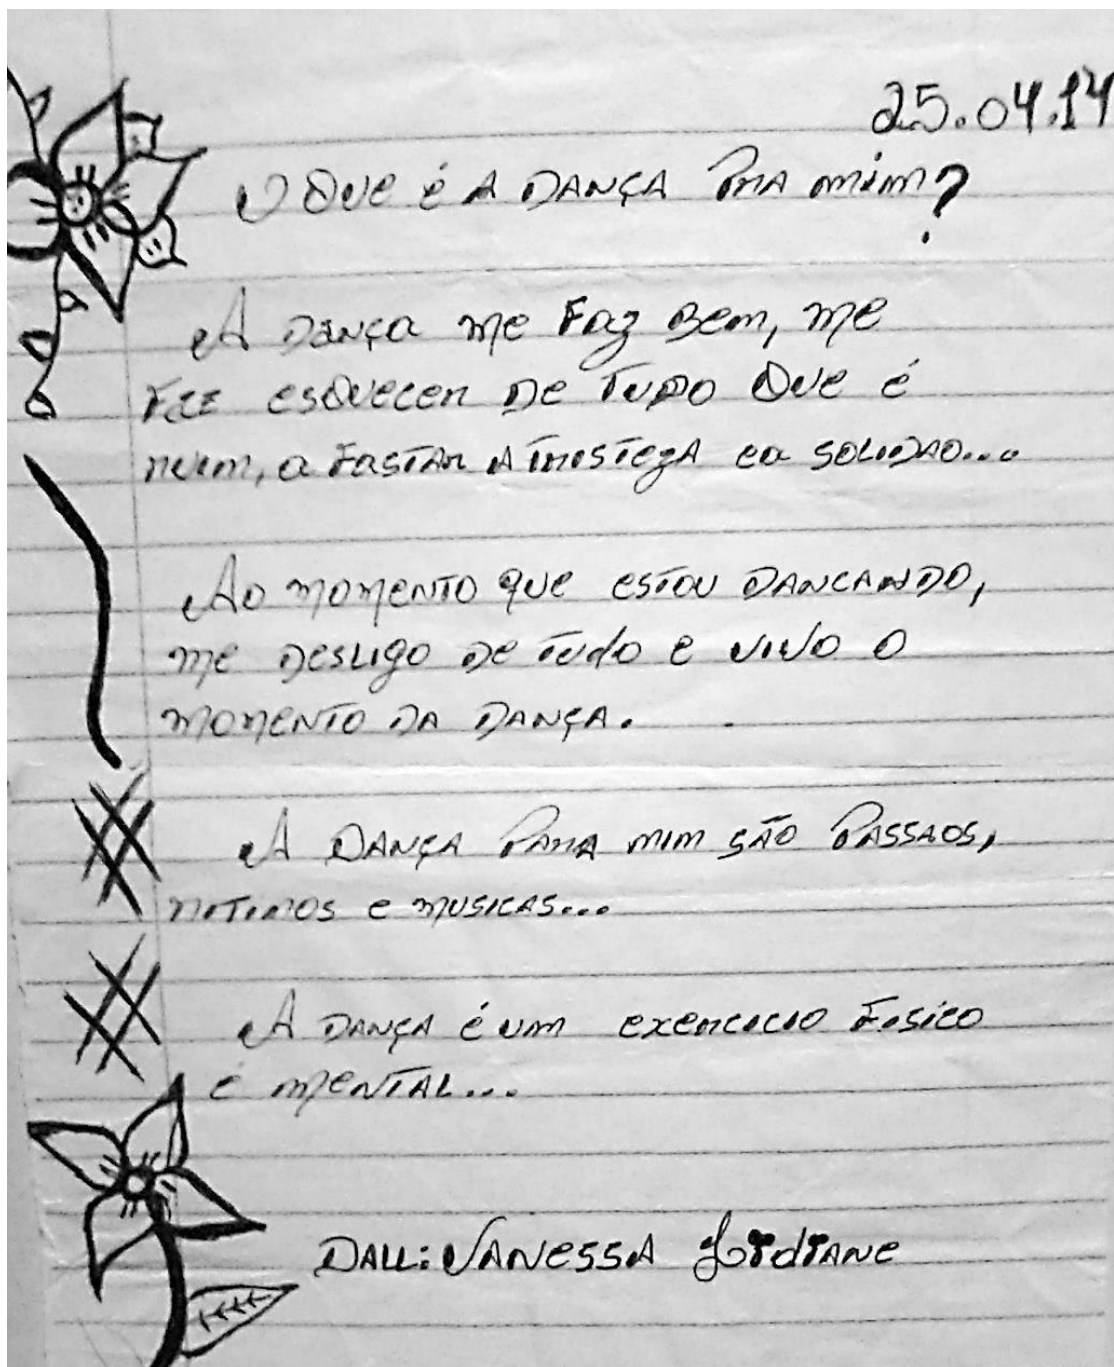 25.04.14
O QUE é A DANÇA PRA mim?
A DANÇA me Faz Bem, me
Faz esQuecer De TUDO QUE é
ruim, a FASTAR A TRISTEZA ea SOLIDÃO...
AO MOMENTO QUE ESTOU DANCANDO,
me DESLIGO DE Tudo e VIVO O
MOMENTO DA DANÇA.
A DANÇA PARA mim SÃO PASSAOS,
RITIMOS e MUSICAS...
A DANÇA é um exercicio Fisico
é MENTAL...
DALL: VANESSA Lidiane